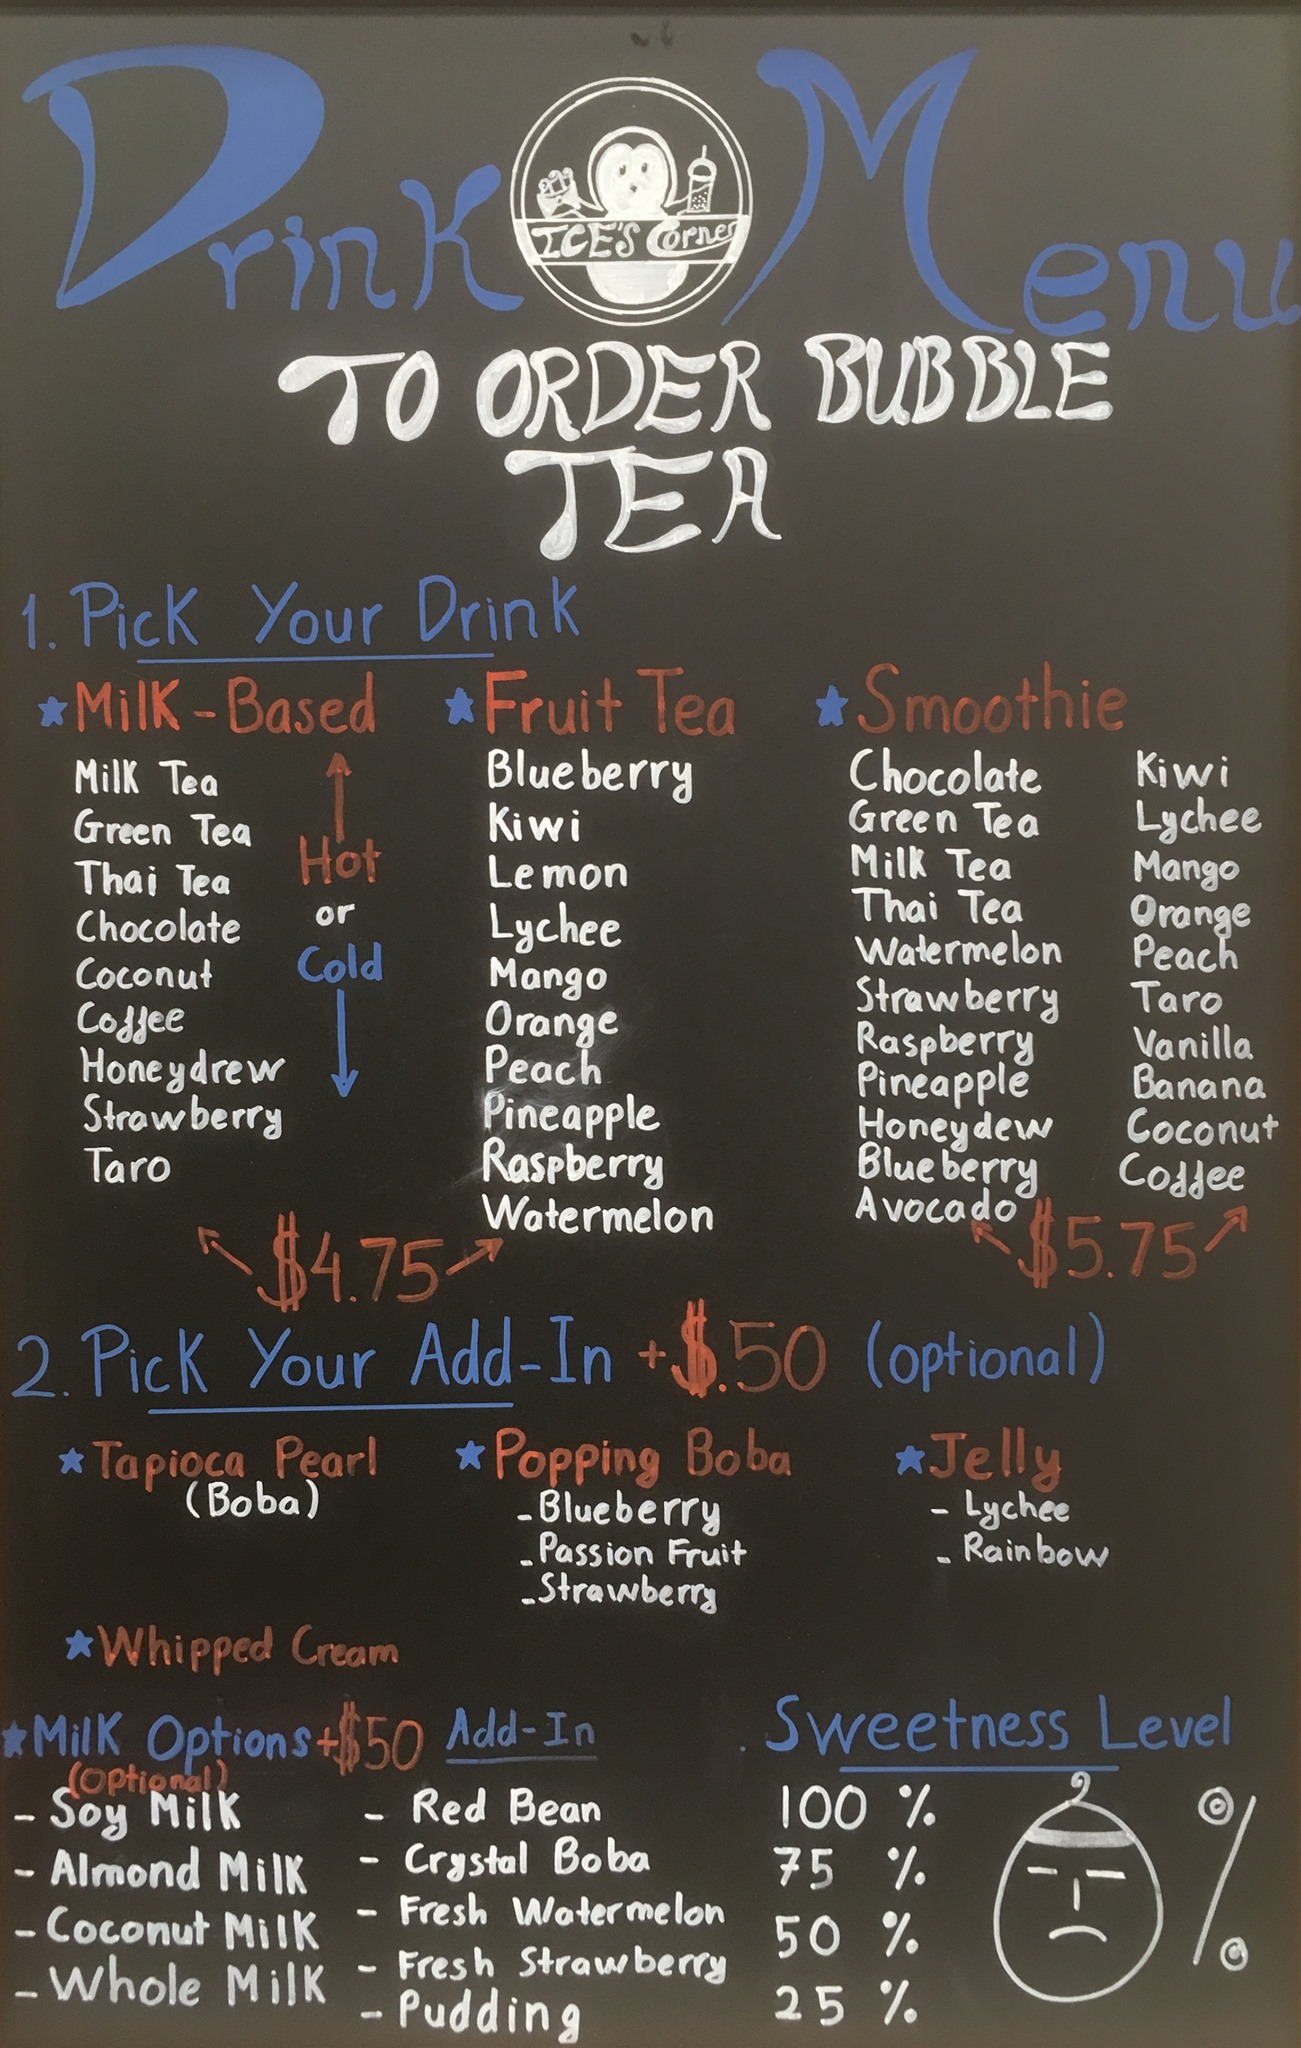 Drink Menu
ICE'S Corner
TO ORDER BUBBLE
TEA
1. Pick Your Drink
Milk-Based
Milk Tea
Green Tea
Thai Tea
Chocolate
Coconut
Coffee
Honeydrew
Strawberry
Taro
Hot
or
Cold
Fruit Tea
Blueberry
Kiwi
Lemon
Lychee
Mango
Orange
Peach
Pineapple
Raspberry
Watermelon
$4.75
Smoothie
Chocolate
Green Tea
Milk Tea
Thai Tea
Watermelon
Strawberry
Raspberry
Pineapple
Honeydew
Blueberry
Avocado
Kiwi
Lychee
Mango
Orange
Peach
Taro
Vanilla
Banana
Coconut
Coffee
$5.75
2. Pick Your Add-In +$.50 (optional)
Tapioca Pearl
(Boba)
Popping Boba
- Blueberry
- Passion Fruit
- Strawberry
Jelly
- Lychee
- Rainbow
Whipped Cream
Milk Options +$50
(optional)
- Soy Milk
- Almond Milk
- Coconut Milk
- Whole Milk
Add-In
- Red Bean
- Crystal Boba
- Fresh Watermelon
- Fresh Strawberry
- Pudding
Sweetness Level
100 %
75 %
50 %
25 %
%